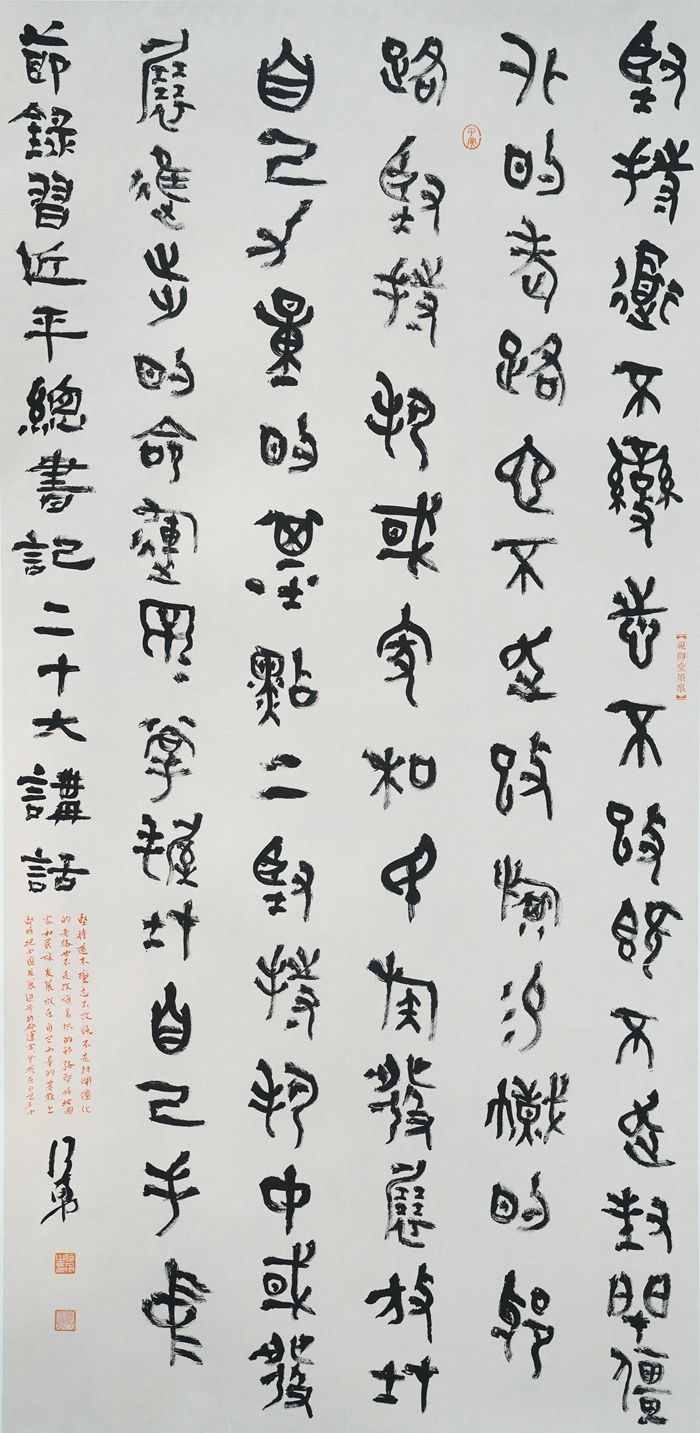 堅持道不變志不改既不走封閉僵
化的老路也不走改旗易幟的邪
路堅持把或家和民族發展放在
自己力量的基點上堅持把中或發
展進步的命運牢〻掌握在自己手中
節錄習近平總書記二十大講話
堅持道不變志不改既不走封閉僵化
的老路也不走改旗易幟的邪路堅持把國
家和民族發展放在自己力量的基點上
堅持把中國發展進步的命運牢牢掌握在自己手中